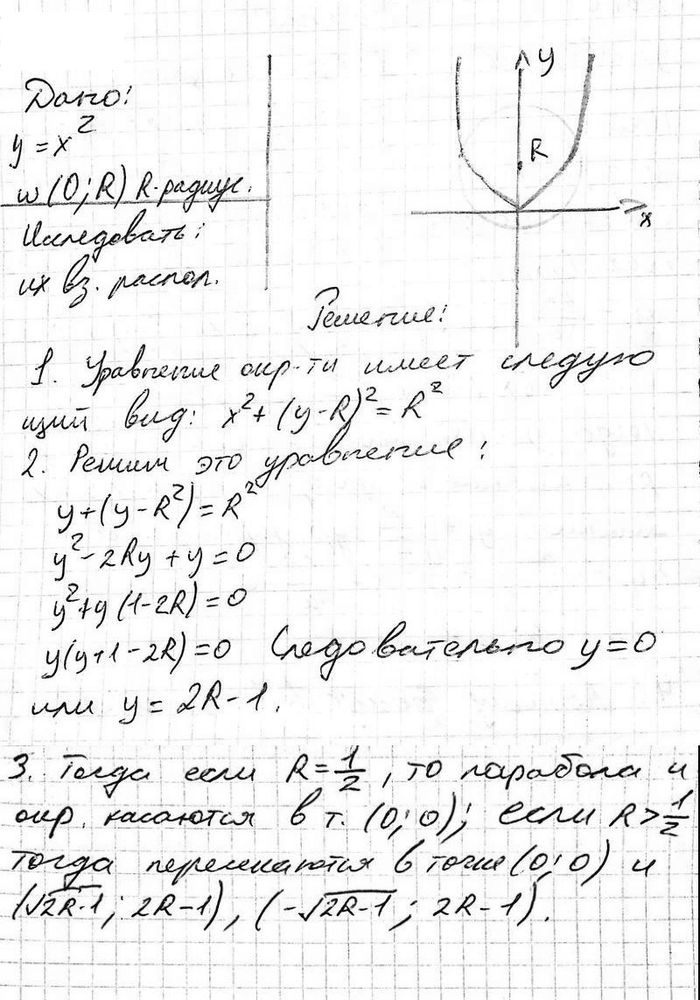 Дано:
y = x²
w (0; R) R-радиус.
Исследовать:
их вз. распол.
y
R
x
Решение:
1. Уравнение окр-ти имеет следую
щий вид: x² + (y-R)² = R²
2. Решим это уравнение:
y + (y-R²) = R²
y² - 2Ry + y = 0
y² + y (1-2R) = 0
y(y+1-2R) = 0 Следовательно y = 0
или y = 2R-1.
3. Тогда если R = 1/2, то парабола и
окр. касаются в т. (0; 0); если R > 1/2
тогда пересекаются в точке (0; 0) и
(√2R-1; 2R-1), (-√2R-1; 2R-1).